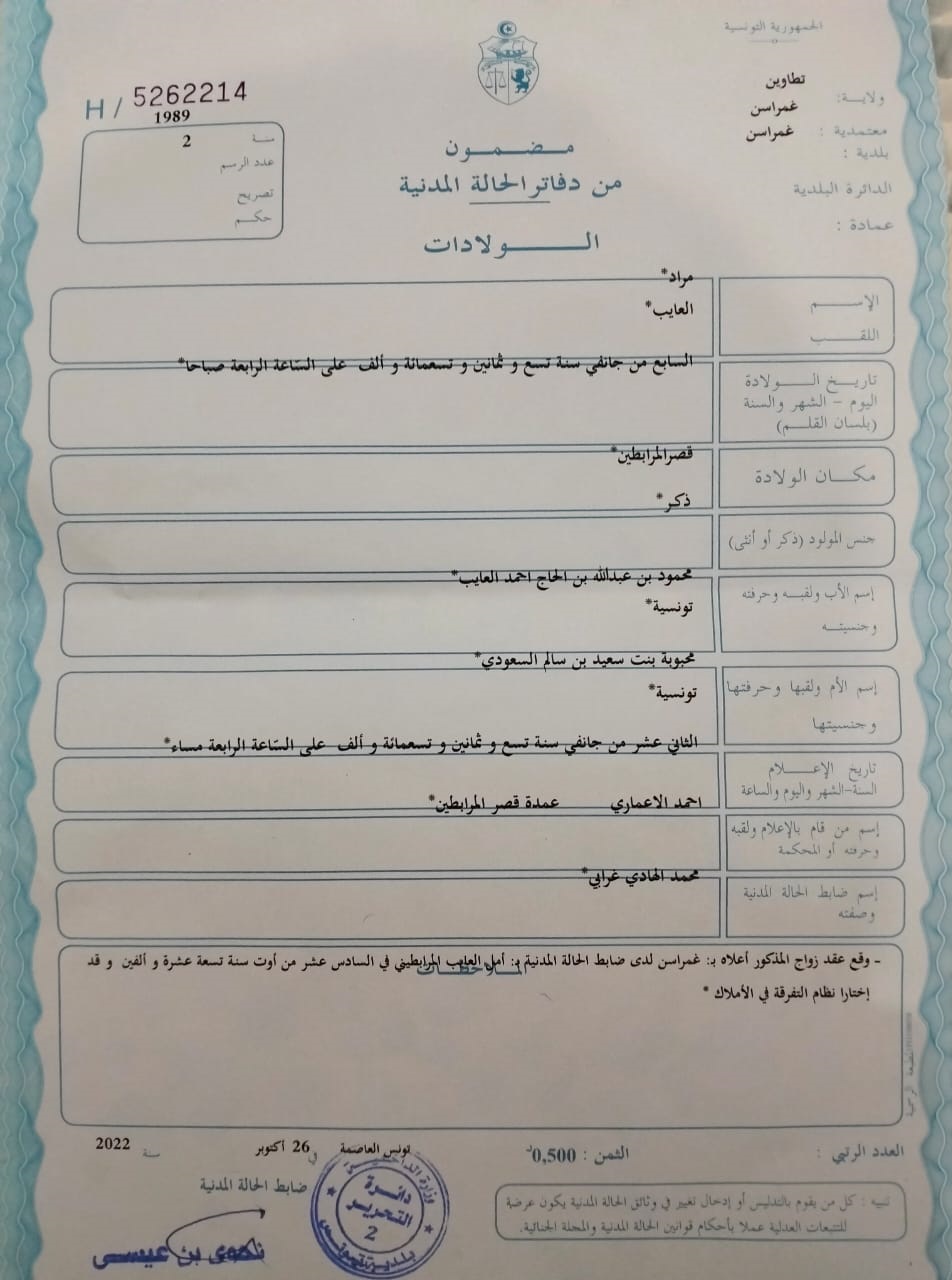 الجمهورية التونسية
ولاية: تطاوين
معتمدية : غمراسن
بلدية : غمراسن
الدائرة البلدية
عمادة :
H / 5262214
سنة 1989
عدد الرسم 2
تصريح
حكم
مضمون
من دفاتر الحالة المدنية
الولادات
الإسم مراد*
اللقب العايب*
تاريخ الولادة
اليوم - الشهر والسنة
(بلسان القلم)
السابع من جانفي سنة تسع و ثمانين و تسعمائة و ألف على السّاعة الرابعة صباحا*
مكان الولادة
قصرالمرابطين*
جنس المولود (ذكر أو أنثى)
ذكر*
إسم الأب ولقبه وحرفته
وجنسيته
محمود بن عبدالله بن الحاج احمد العايب*
تونسية*
إسم الأم ولقبها وحرفتها
وجنسيتها
محبوبة بنت سعيد بن سالم السعودي*
تونسية*
تاريخ الإعلام
السنة-الشهر واليوم والساعة
الثاني عشر من جانفي سنة تسع و ثمانين و تسعمائة و ألف على السّاعة الرابعة مساء*
إسم من قام بالإعلام ولقبه
وحرفته أو المحكمة
احمد الاعماري عمدة قصر المرابطين*
إسم ضابط الحالة المدنية
وصفته
محمد الهادي غرابي*
ملاحظات
- وقع عقد زواج المذكور أعلاه بـ: غمراسن لدى ضابط الحالة المدنية بـ: أمل العايب المرابطيني في السادس عشر من أوت سنة تسعة عشرة و ألفين و قد
إختارا نظام التفرقة في الأملاك *
العدد الرتبي :
الثمن : 0,500د
تونس العاصمة في 26 أكتوبر سنة 2022
ضابط الحالة المدنية
تنبيه : كل من يقوم بالتدليس أو إدخال تغيير في وثائق الحالة المدنية يكون عرضة
للتتبعات العدلية عملا بأحكام قوانين الحالة المدنية والمجلة الجنائية.
وزارة الداخلية
دائرة
التحرير
2
بلدية تونس
بن عيسى